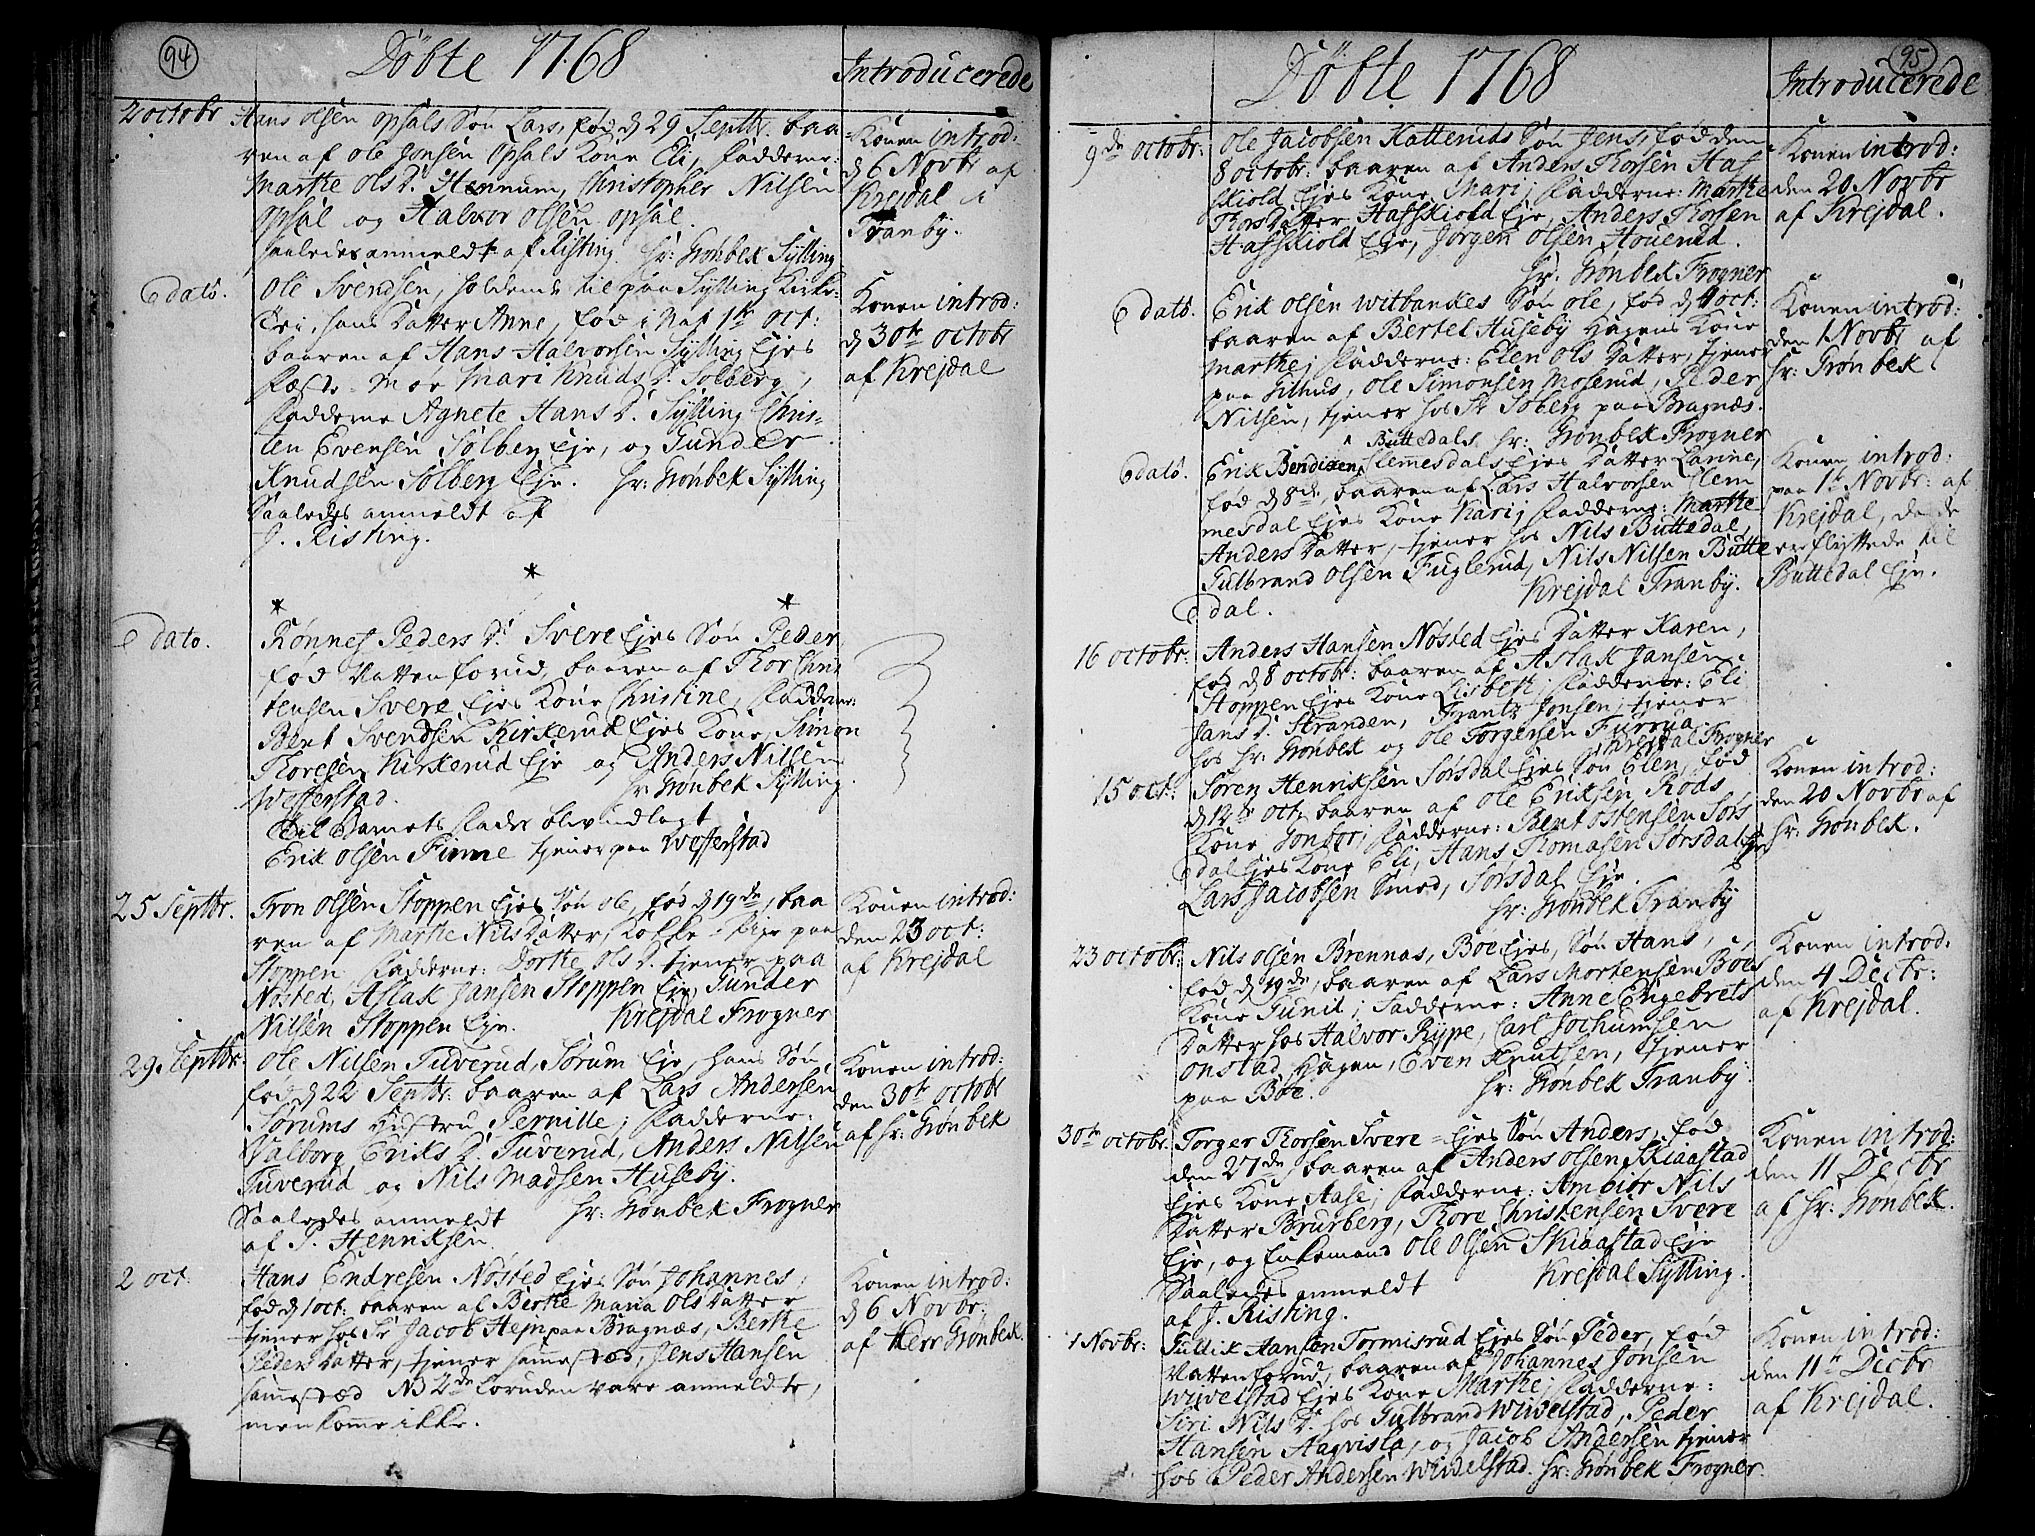 94
Döbte 1768
Introducerede
2 octobr
Hans Olsen Opsals Søn Lars, fød d 29 Septbr. baa
ren af Ole Jonsen Opsals Kone Eli, Fadderne:
Marthe Ols D. Hennum, Christopher Nilsen
Opsal og Halvor Olsen Opsal.
saaledes anmeldt af Risting. Hr: Grønbek Sylling
Konen introd:
d 6 Novbr af
Krejdal i
Tranby.
E dato.
Ole Svendsen, holdende til paa Sylling Kirke-
Eie, hans Datter Anne, fød i Nat 1te Oct:
baaren af Hans Halvorsen Sylling Ejes
Fæste-Møe Mari Knuds D. Solberg,
Fadderne Agnete Hans D. Sylling Chris-
ten Evensen Solberg Eje, og Gunder
Knudsen Solberg Eje. Hr: Grønbek Sylling
Saaledes anmeldt af
J. Risting.
Konen introd:
d 30te octobr
af Krejdal
E dato.
Rønnef Peders D. Svere Ejes Søn Peder,
fød Natten forud, baaren af Thor Chris
tensen Svere Ejes Kone Christine, Fadderne:
Bent Svendsen Kirkerud Ejes Kone, Simon
Thoresen Kirkerud Eje og Anders Nilsen
Wefferstad. Hr: Grønbek Sylling.
Til Barnets Fader blev udlagt
Erik Olsen Finne tjener paa Wefferstad
25 Septbr.
Tron Olsen Stoppen Ejes Søn Ole, fød d 19de, baa
ren af Marthe Nils Datter, Kokke-Pige paa
Stoppen, Fadderne: Dorthe Ols D. tjener paa
Nøsted, Aslak Jansen Stoppen Eje, Gunder
Nilsen Stoppen Eje. Krejdal Frogner
Konen introd:
den 23 oct:
af Krejdal
29. Septbr.
Ole Nilsen Tuverud, Sørum Eje, hans Søn
fød d 22 Septbr: baaren af Lars Andersen
Sørums Hustru Pernille; Fadderne:
Valborg Eriks D. Tuverud, Anders Nilsen
Tuverud og Nils Madsen Huseby.
Saaledes anmeldt Hr: Grønbek Frogner
af P. Henriksen.
Konen introd:
den 30te octobr
af Hr: Grønbek
2 oct.
Hans Endresen Nøsted Ejes Søn Johannes,
fød d 1 oct: baaren af Berthe Maria Ols Datter
tjener hos Sr Jacob Hejn paa Bragnæs, Berthe
Peders Datter, tjener sammested, Jens Hansen
sammested NB 2de foruden vare anmeldte,
men komme ikke.
Konen introd:
d 6 Novbr.
af Herr Grønbek.
95
Döbte 1768
Introducerede
9de octobr:
Ole Jacobsen Katteruds Søn Jens, fød den
8 octobr: baaren af Anders Thorsen Haf
skiold Ejes Kone Mari; Fadderne: Marthe
Thors Datter Hafskiold Eje, Anders Thorsen
Hafskiold Eje, Jörgen Olsen Houerud.
Hr. Grønbek Frogner
Konen introd:
den 20 Novbr
af Krejdal.
E dato.
Erik Olsen Witbankes Søn Ole, fød d 1 oct:
baaren af Bertel Huseby Hagens Kone
Marthe; Fadderne: Elen Ols Datter, tjener
paa Gilhus, Ole Simonsen Moserud, Peder
Nilsen, tjener hos Sr Soberg paa Bragnæs.
Hr: Grønbek Frogner
Konen introd:
den 1 Novbr af
Hr: Grønbek
E dato.
Buttedals
Erik Bendixen Slemmesdals Ejes Datter Larine,
fød d 8de, baaren af Lars Halvorsen Slem
mesdal Ejes Kone Kari; Fadderne: Marthe
Anders Datter, tjener hos Nils Buttedal,
Gulbrand Olsen Fuglerud, Nils Nilsen Butte
dal. Krejdal Tranby.
Konen introd:
paa 1te Novbr: af
Krejdal, da de
ere flyttede til
Buttedal Eje.
16 octobr:
Anders Hansen Nøsted Ejes Datter Karen,
fød d 8 octobr: baaren af Aslak Jansen
Stoppen Ejes Kone Lisbeth; Fadderne: Eli
Jans D. Stranden, Frantz Jonsen, tjener
hos Hr: Grønbek og Ole Torgersen Fuerua.
Krejdal Frogner
15 oct:
Sören Henriksen Sørsdal Ejes Søn Elen, fød
d 12te oct, baaren af Ole Eriksen Røds
Kone Gonbor; Fadderne: Bent Ostensen Sørs
dal Ejes Kone Eli, Hans Thomasen Sørsdal Eje
Lars Jacobsen Smed, Sørsdal Eje.
Hr: Grønbek Tranby
Konen introd:
den 20 Novbr af
Hr: Grønbek.
23 octobr:
Nils Olsen Brennas, Böe Ejes, Søn Hans,
fød d 19de, baaren af Lars Mortensen Böes
Kone Gunil; Fadderne: Anne Engebrets
Datter hos Halvor Rype, Carl Jochumsen
Onstad Hagen, Even Knutsen, tjener
paa Böe. Hr: Grønbek Tranby.
Konen introd:
den 4 Decbr:
af Krejdal.
30te octobr.
Torger Thorsen Svere-Ejes Søn Anders, fød
den 27de, baaren af Anders Olsen Skiaastad
Ejes Kone Aase; Fadderne: Ambiør Nils
Datter Brurberg, Thore Christensen Svere
Eje, og Enkemand Ole Olsen Skiaastad Eje
Saaledes anmeldt Krejdal Sylling.
af J. Risting.
Konen introd:
den 11 Decbr
af Hr: Grønbek.
1 Novbr:
Gullik Hansen Tormisrud Ejes Søn Peder, fød
Natten forud, baaren af Johannes Jonsen
Wivelstad Ejes Kone Marthe; Fadderne:
Siri Nils D. hos Gulbrand Wivelstad, Peder
Hansen Haqvisla, og Jacob Andersen tjener
hos Peder Andersen Wivelstad. Hr: Grønbek Frogner.
Konen introd:
den 11te Decbr
af Krejdal.